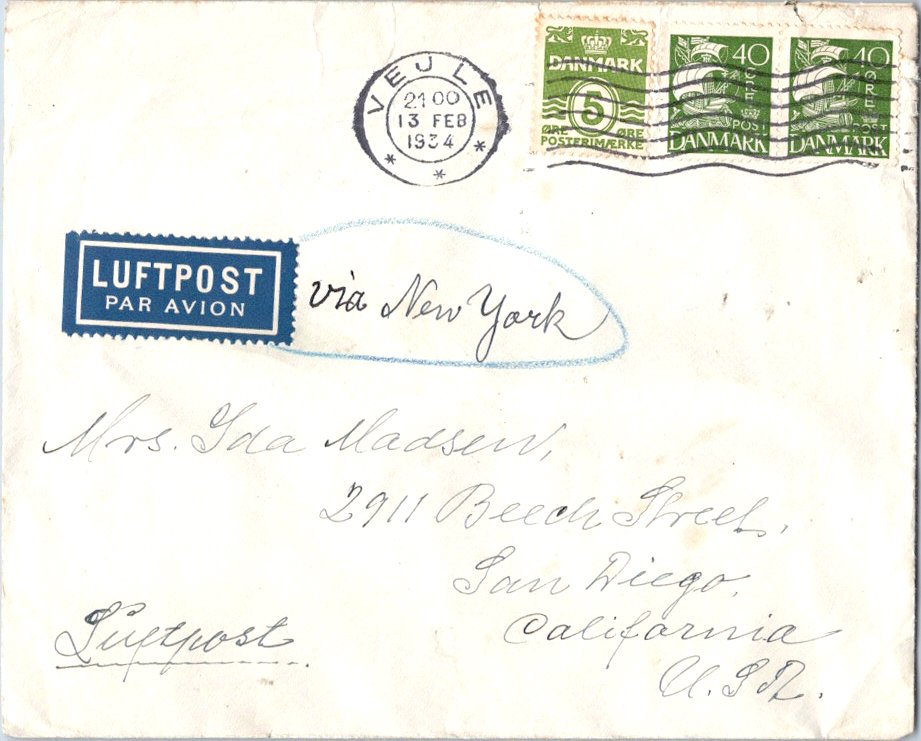 VEJLE
21 00
13 FEB
1934
DANMARK
5
ØRE ØRE
POSTFRIMÆRKE
40
ØRE
POST
DANMARK
40
ØRE
POST
DANMARK
LUFTPOST
PAR AVION
via New York
Mrs. Ida Madsen,
2911 Beech Street,
San Diego,
California
U.S.A.
Luftpost